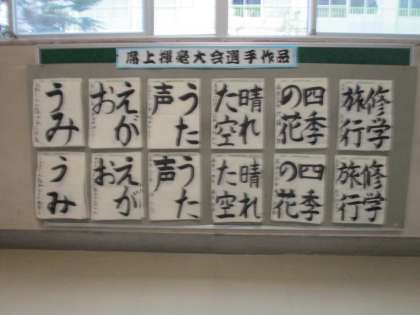 席上揮毫大会選手作品
修学
旅行
四季
の花
晴れ
た空
うた
声
えが
お
うみ
修学
旅行
四季
の花
晴れ
た空
うた
声
えが
お
うみ